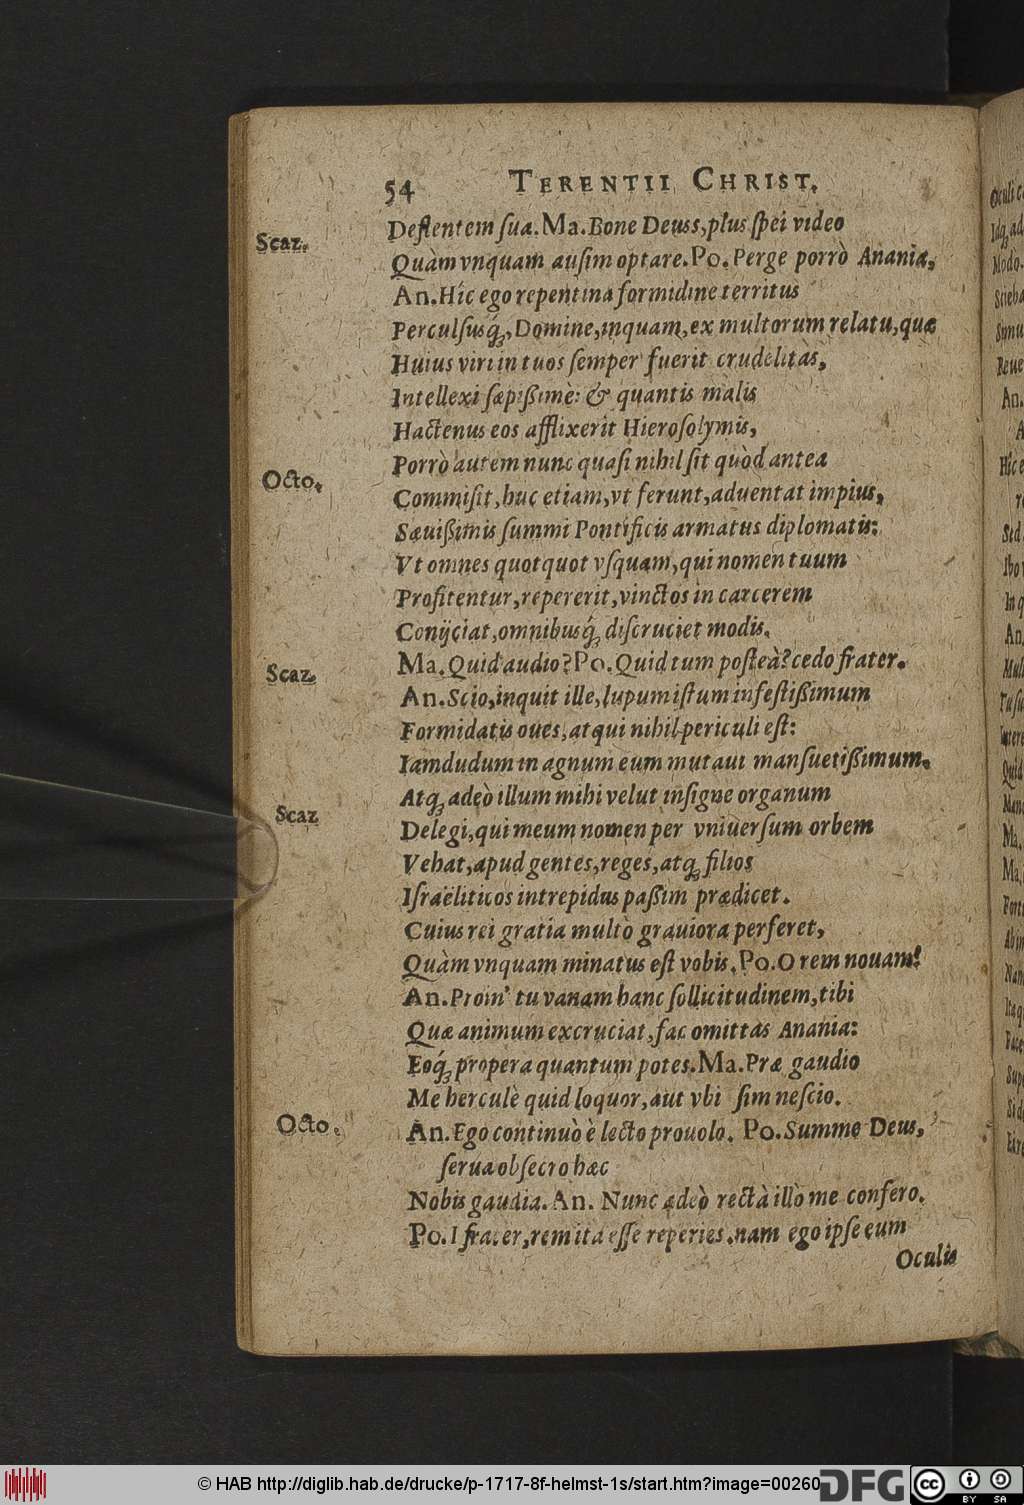 54 TERENTII CHRIST.
Deflentem ſua. Ma. Bone Deuss, plus ſpei video
Scaz. Quàm vnquam auſim optare. Po. Perge porrò Anania,
An. Híc ego repentina formidine territus
Perculſusq́;, Domine, inquam, ex multorum relatu, quæ
Huius viri in tuos ſemper fuerit crudelitàs,
Intellexi ſæpißimè: & quantis malis
Hactenus eos afflixerit Hieroſolymis,
Porrò autem nunc quaſi nihil ſit quòd antea
Octo. Commiſit, huc etiam, vt ferunt, aduentat impius,
Sæuißimis ſummi Pontificis armatus diplomatis:
Vt omnes quotquot vſquam, qui nomen tuum
Profitentur, repererit, vinctos in carcerem
Conijciat, omnibusq́; diſcruciet modis.
Scaz. Ma. Quid audio? Po. Quid tum poſteà? cedo frater.
An. Scio, inquit ille, lupum iſtum infeſtißimum
Formidatis oues, atqui nihil periculi eſt:
Iamdudum in agnum eum mutaui manſuetißimum.
Scaz Atq; adeò illum mihi velut inſigne organum
Delegi, qui meum nomen per vniuerſum orbem
Vehat, apud gentes, reges, atq; filios
Iſraëliticos intrepidus paßim prædicet.
Cuius rei gratia multò grauiora perferet,
Quàm vnquam minatus eſt vobis. Po. O rem nouam!
An. Proin' tu vanam hanc ſollicitudinem, tibi
Quæ animum excruciat, fac omittas Anania:
Eoq́; propera quantum potes. Ma. Præ gaudio
Me herculè quid loquor, aut vbi ſim neſcio.
Octo. An. Ego continuò è lecto prouolo. Po. Summe Deus,
ſerua obſecro hæc
Nobis gaudia. An. Nunc adeò rectà illò me confero.
Po. I frater, rem ita eſſe reperies. nam ego ipſe eum
Oculis
© HAB http://diglib.hab.de/drucke/p-1717-8f-helmst-1s/start.htm?image=00260
DFG
cc BY SA